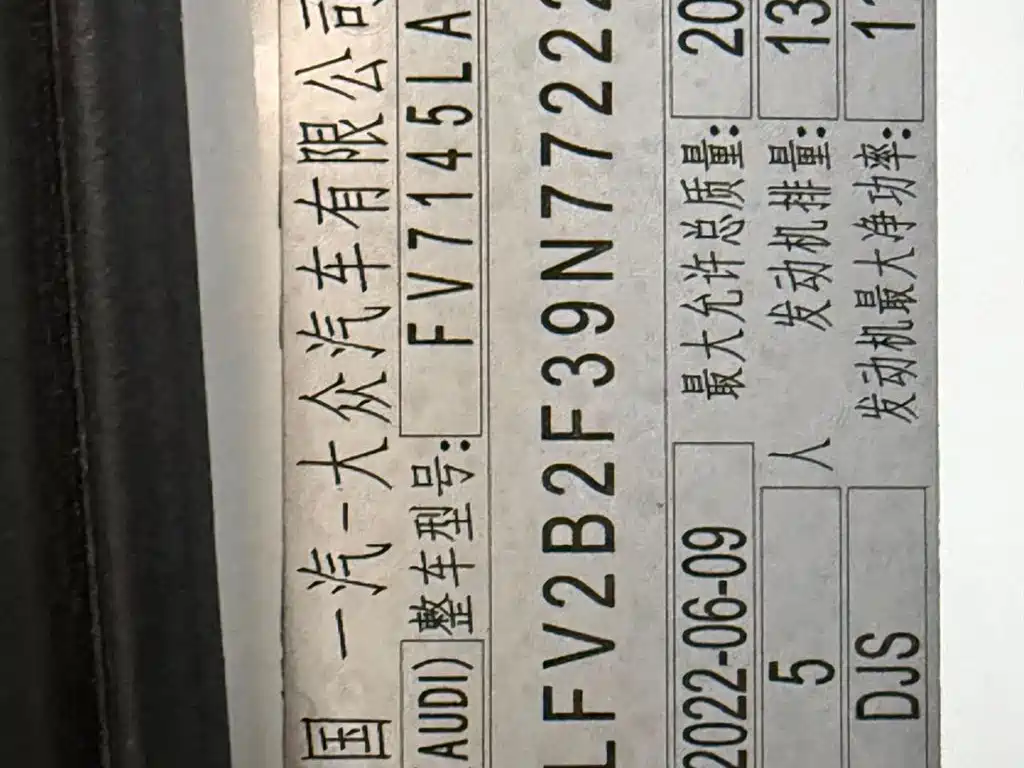 国 一汽-大众汽车有限公司
AUDI) 整车型号: FV7145LA
LFV2B2F39N7722
2022-06-09 最大允许总质量: 20
5 人 发动机排量: 13
DJS 发动机最大净功率: 11